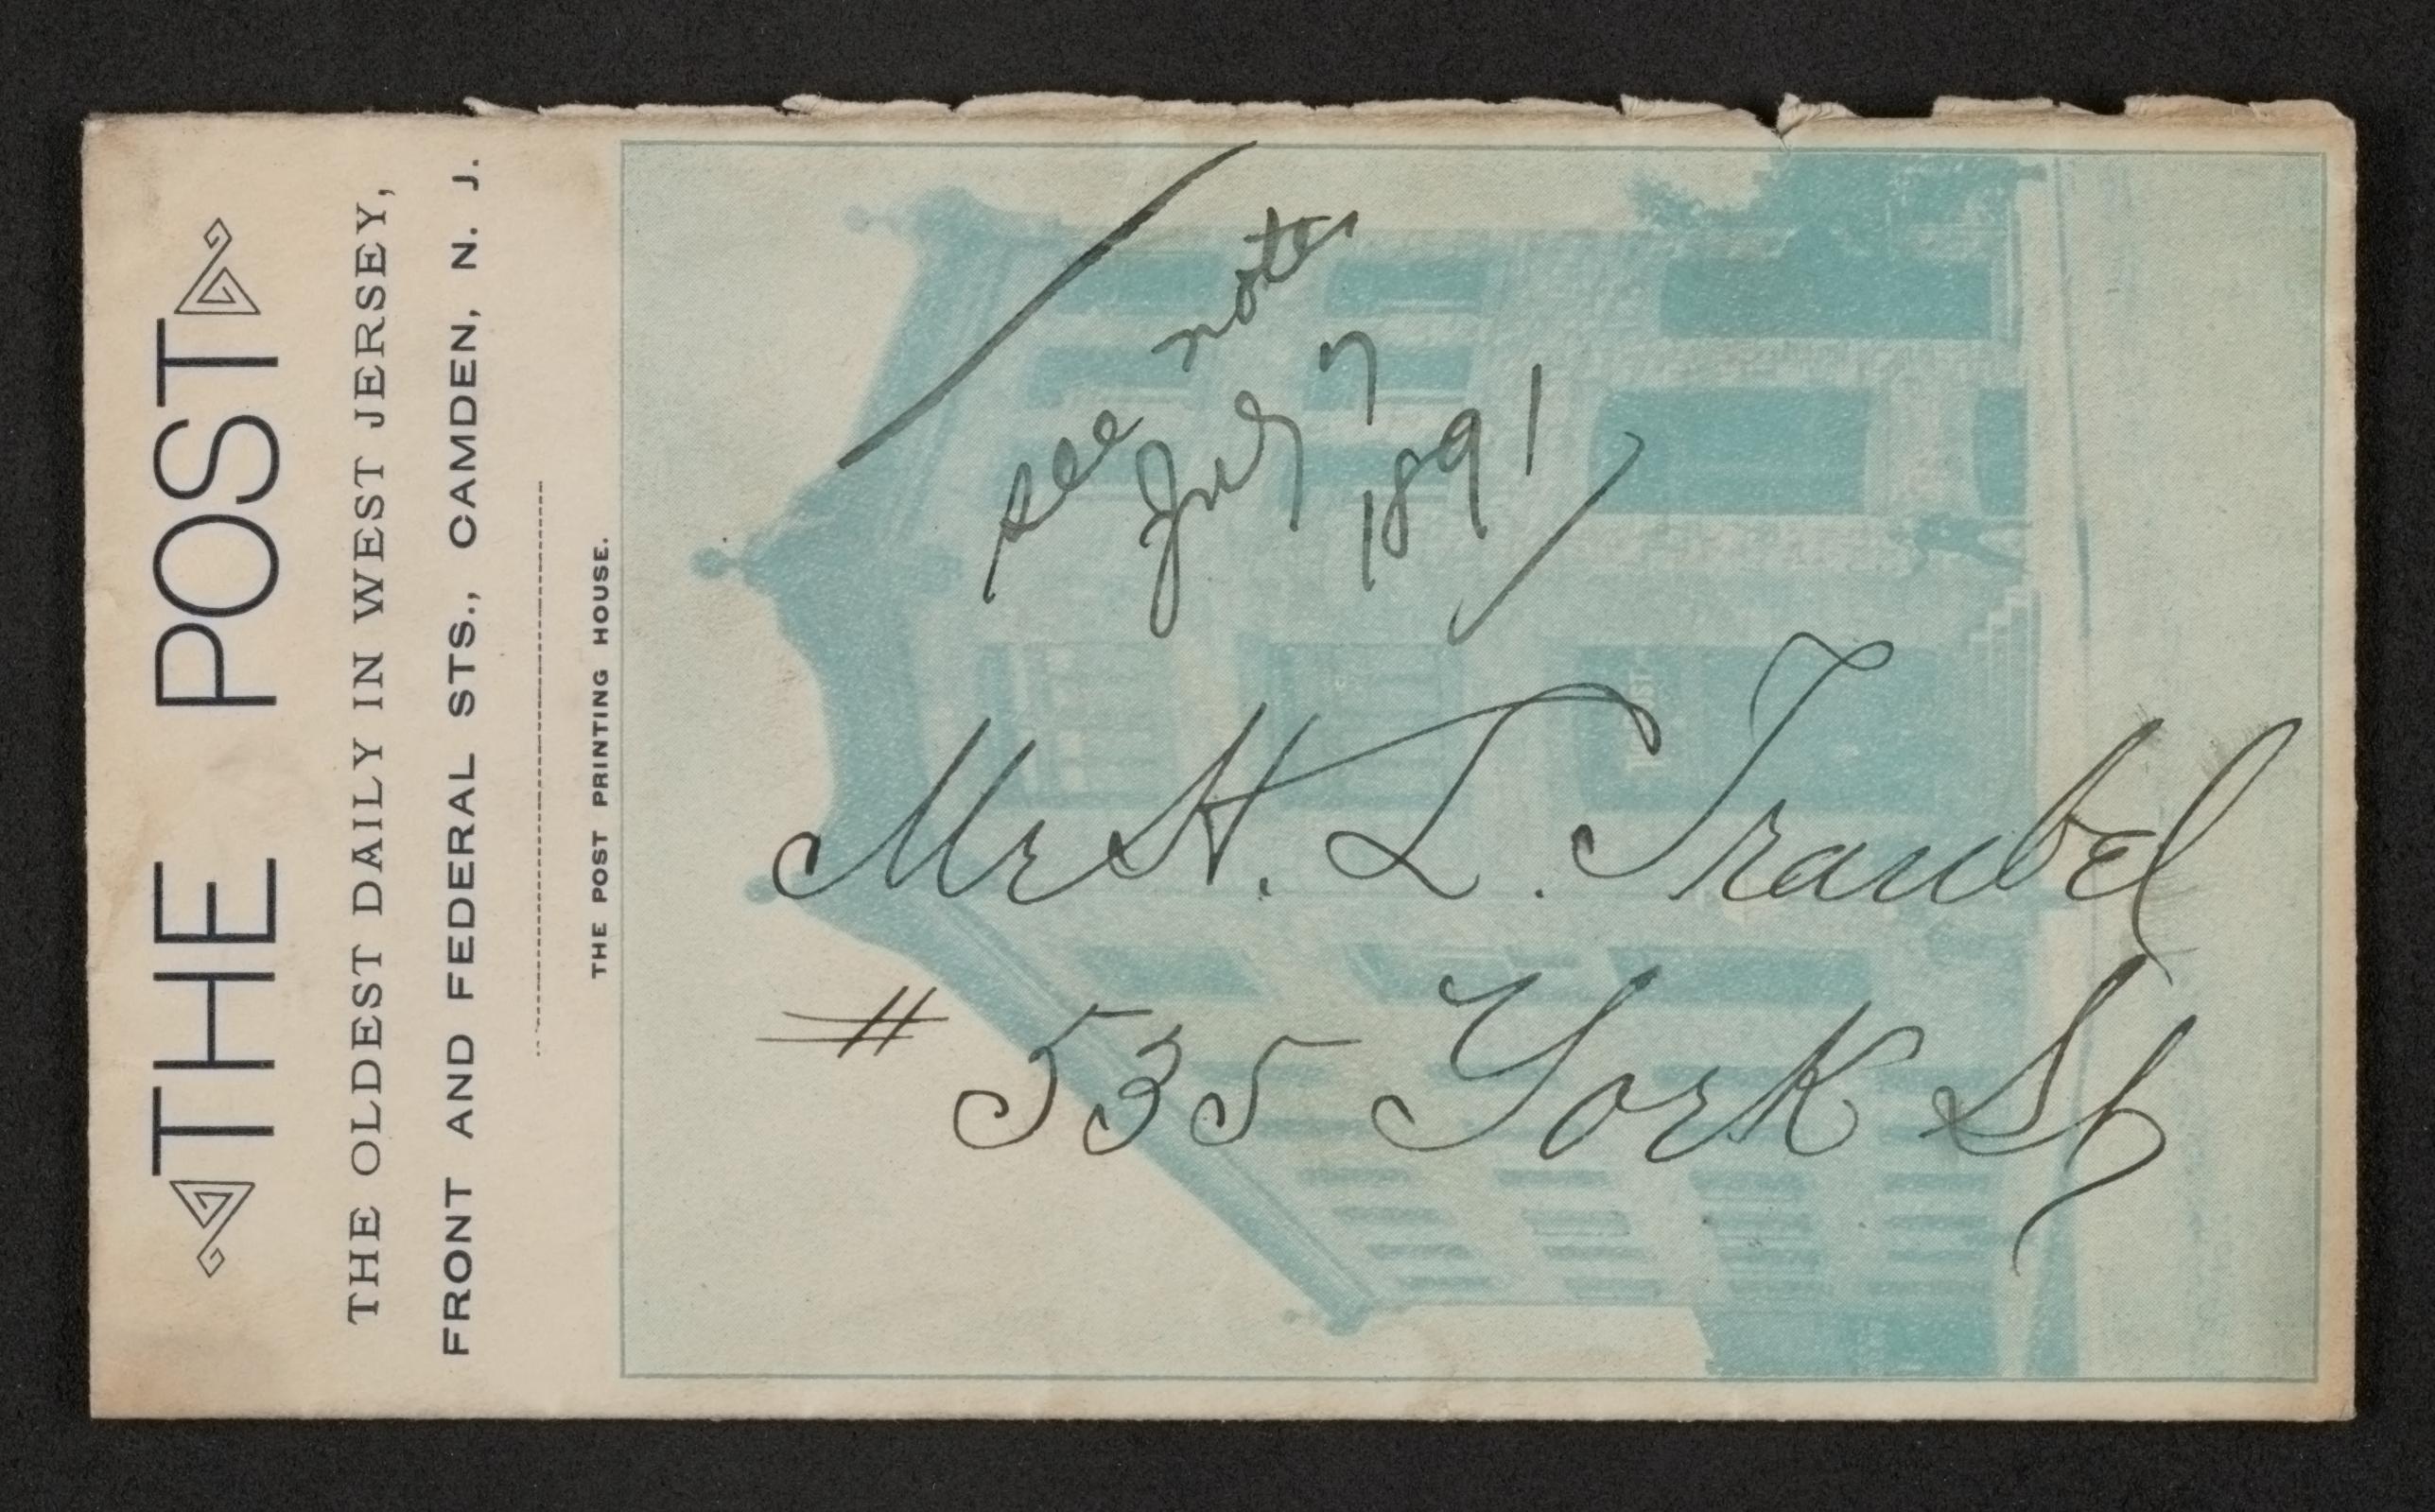 THE POST
THE OLDEST DAILY IN WEST JERSEY,
FRONT AND FEDERAL STS., CAMDEN, N. J.
THE POST PRINTING HOUSE.
see notes
July 7
1891
Mr H. L. Traubel
# 535 York St